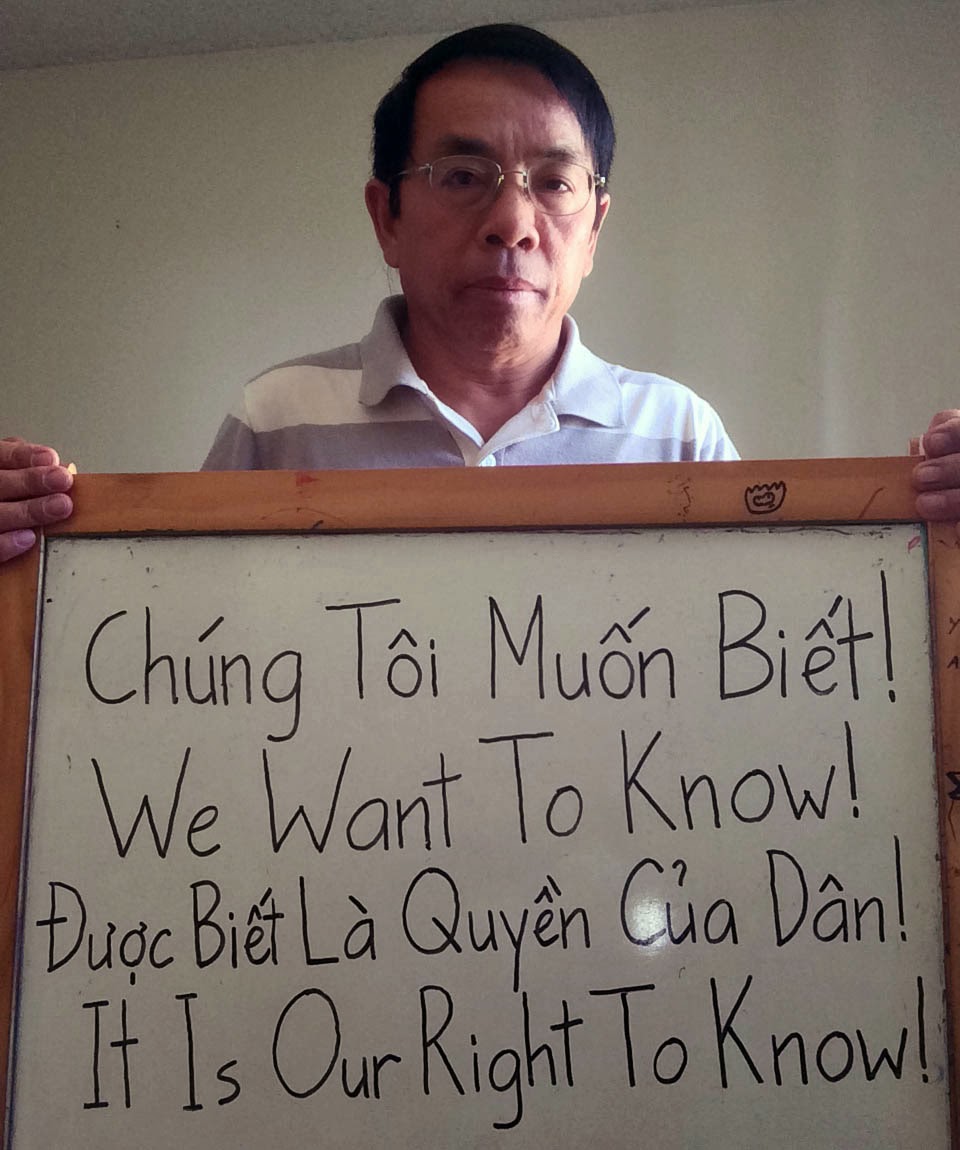 Chúng Tôi Muốn Biết!
We Want To Know!
Được Biết Là Quyền Của Dân!
It Is Our Right To Know!